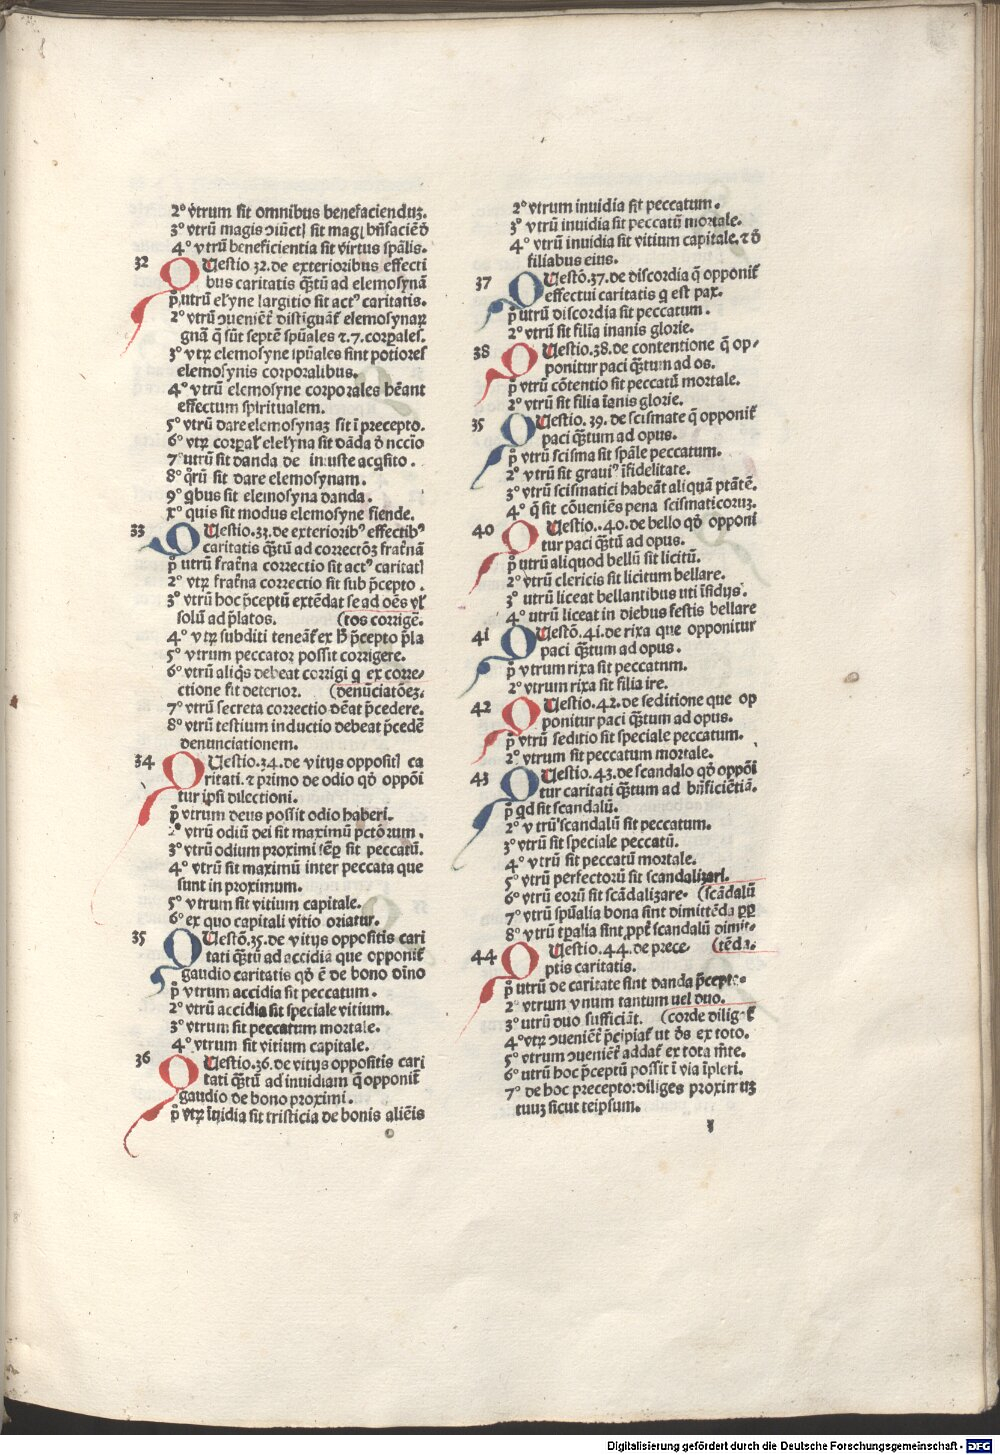 2° vtrum sit omnibus benefacienduꝫ.
3° vtrū magis ↄiūctꝭ sit magꝭ bn̄faciēdū
4° vtrū beneficientia sit virtus spālis.
32 QUestio 32. de exterioribus effecti
bus caritatis q̄ꝫtū ad elemosynā
p̄. utrū elꝰyne largitio sit actꝰ caritatis.
2° vtrū ↄuenient̄ distiguāt̄ elemosynaꝝ
gnā q̄ sūt septē spūales ⁊.7. corꝑales.
3° vtꝝ elemosyne spūales sint potiores
elemosynis corporalibus.
4° vtrū elemosyne corporales hēant
effectum spiritualem.
5° vtrū dare elemosynaꝫ sit ī precepto.
6° vtꝝ corꝑal̄ eleꝰyna sit dāda d̄ nccīo
7° utrū sit danda de iniuste acq̄sito.
8° q̄rū sit dare elemosynam.
9° q̄bus sit elemosyna danda.
x° quis sit modus elemosyne fiende.
33 QUestio.33. de exterioribꝰ effectibꝰ
caritatis q̄ꝫtū ad correctōꝫ frat̄nā
p̄ utrū frat̄na correctio sit actꝰ caritatꝭ
2° vtꝝ frat̄na correctio sit sub p̄cepto.
3° vtrū hoc p̄ceptū extēdat se ad oēs vl̄
solū ad p̄latos. (tos corrigē.
4° vtꝝ subditi teneāt̄ ex h̄ p̄cepto p̄la
5° vtrum peccator possit corrigere.
6° vtrū aliq̄s debeat corrigi q̄ ex corre-
ctione fit deterior. (denūciatōeꝫ.
7° vtrū secreta correctio dēat p̄cedere.
8° vtrū testium inductio debeat p̄cedē
denunciationem.
34 QUestio.34. de vitijs oppositꝭ ca
ritati. ⁊ primo de odio qd̄ oppōi
tur ipsi dilectioni.
p̄ vtrum deus possit odio haberi.
2° vtrū odiū dei sit maximū pctōrum.
3° vtrū odium proximi sēꝑ sit peccatū.
4° vtrū sit maximū inter peccata que
sunt in proximum.
5° vtrum sit vitium capitale.
6° ex quo capitali vitio oriatur.
35 QUestō.35. de vitijs oppositis cari
tati q̄ꝫtū ad accidia que opponit̄
gaudio caritatis qd̄ ē de bono diīno
p̄ vtrum accidia sit peccatum.
2° vtrū accidia sit speciale vitium.
3° vtrum sit peccatum mortale.
4° vtrum sit vitium capitale.
36 QUestio.36. de vitijs oppositis cari
tati q̄ꝫtū ad inuidiam q̄ opponit̄
gaudio de bono proximi.
p̄ vtꝝ īuidia sit tristicia de bonis aliēis
2° vtrum inuidia sit peccatum.
3° vtrū inuidia sit peccatū mortale.
4° vtrū inuidia sit vitium capitale. ⁊ d̄
filiabus eius.
37 QUestō.37. de discordia q̄ opponit̄
effectui caritatis q̄ est pax.
p̄ utrū discordia sit peccatum.
2° vtrū sit filia inanis glorie.
38 QUestio.38. de contentione q̄ op-
ponitur paci q̄ꝫtum ad os.
p̄ vtrū cōtentio sit peccatū mortale.
2° vtrū sit filia īanis glorie.
35 QUestio. 39. de scismate q̄ opponit̄
paci q̄ꝫtum ad opus.
p̄ vtrū scisma sit spāle peccatum.
2° vtrū sit grauiꝰ īfidelitate.
3° vtrū scismatici habeāt aliquā ptātē.
4° q̄ sit cōueniēs pena scismaticoruꝫ.
40 QUestio..40. de bello qd̄ opponi
tur paci q̄ꝫtū ad opus.
p̄ utrū aliquod bellū sit licitū.
2° vtrū clericis sit licitum bellare.
3° utrū liceat bellantibus uti īsidijs.
4° utrū liceat in diebus festis bellare
41 QUestō.41. de rixa que opponitur
paci q̄ꝫtum ad opus.
p̄ vtrum rixa sit peccatnm.
2° vtrum rixa sit filia ire.
42 QUestio.42. de seditione que op
ponitur paci q̄ꝫtum ad opus.
p̄ vtrū seditio sit speciale peccatum.
2° vtrum sit peccatum mortale.
43 QUestio.43. de scandalo qd̄ oppōi
tur caritati q̄ꝫtum ad bn̄ficiētiā.
p̄ qd sit scandalū.
2° vtrū scandalū sit peccatum.
3° vtrū sit speciale peccatū.
4° vtrū sit peccatū mortale.
5° vtrū perfectorū sit scandalizari.
6° vtrū eorū sit scādalizare. (scādalū
7° vtrū spūalia bona sint dimittēda ꝓꝑ
8° vtrū tꝑalia sint ꝓpt̄ scandalū dimit-
44 QUestio.44. de prece (tēda.
ptis caritatis.
p̄ utrū de caritate sint danda p̄cepta
2° vtrum vnum tantum uel duo.
3° utrū duo sufficiāt. (corde diligat̄
4° vtꝝ ↄuenient̄ p̄cipiat̄ ut de̅s ex toto.
5° vtrum ↄuenient̄ addat̄ ex tota mēte.
6° utrū hoc p̄ceptū possit ī via īpleri.
7° de hoc precepto: diliges proximuꝫ
tuuꝫ sicut teipsum.
Digitalisierung gefördert durch die Deutsche Forschungsgemeinschaft - DFG